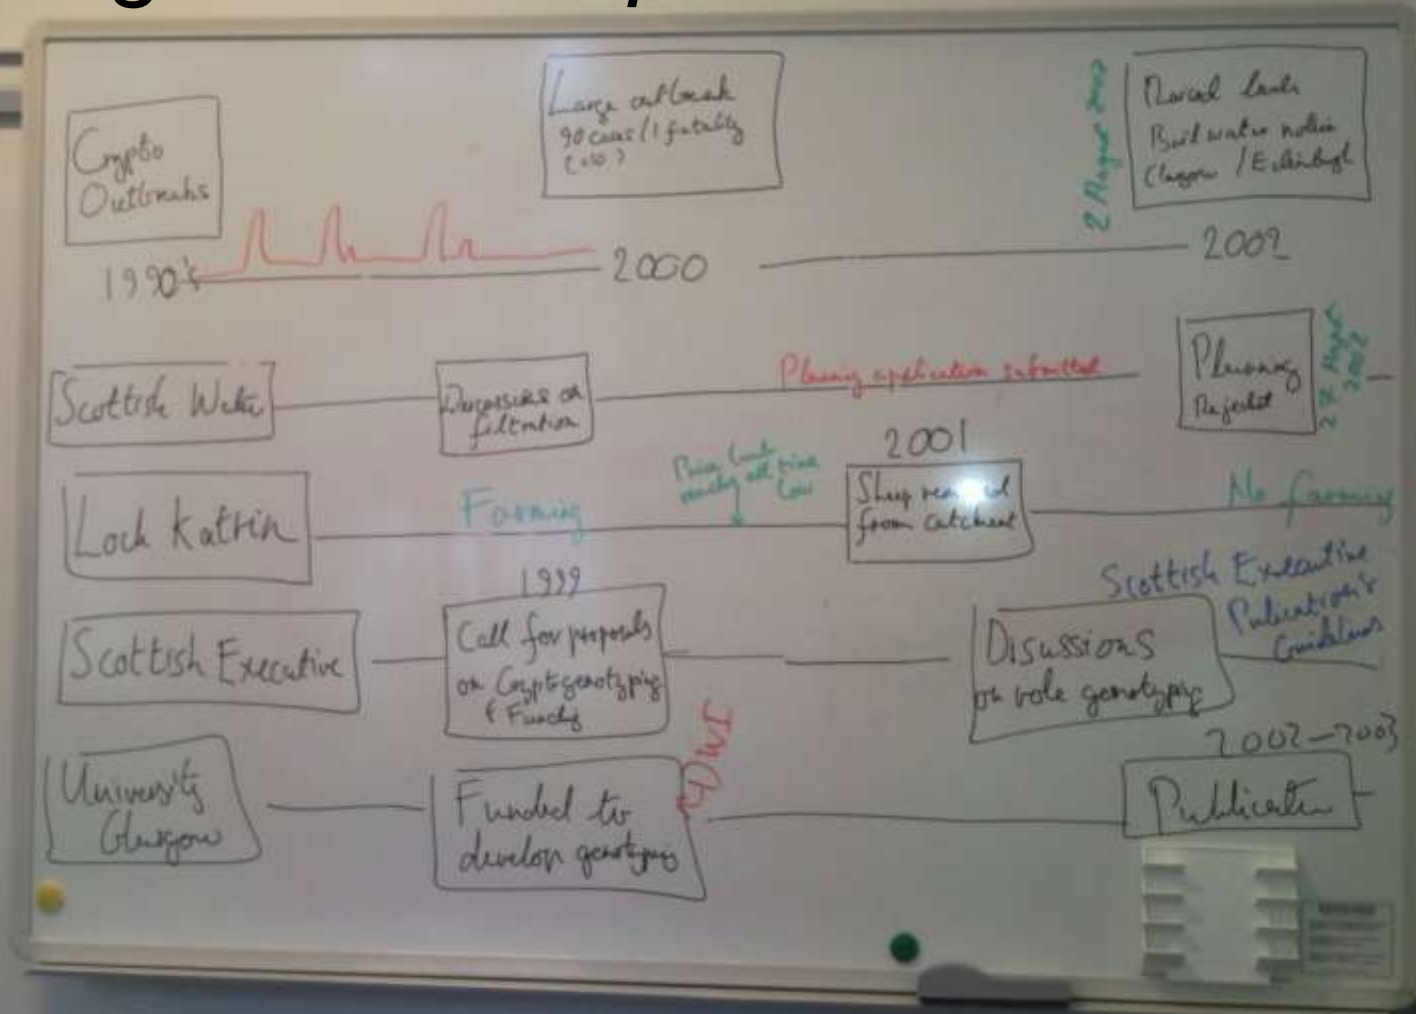 Crypto
Outbreaks
Large outbreak
90 cases / 1 fatality
2 August 2002
Boil water notice
Glasgow / Edinburgh
1990's
2000
2002
Scottish Water
Discussions on
filtration
Planning application submitted
Planning
Rejected
August
2002
Loch Katrin
Farming
Price
all time
low
2001
Sheep removed
from catchment
No farming
Scottish Executive
1999
Call for proposals
on Crypto genotyping
& Funding
Disussions
on role genotyping
Scottish Executive
Guidelines
University
Glasgow
Funded to
develop genotyping
DWI
2002-2003
Publication